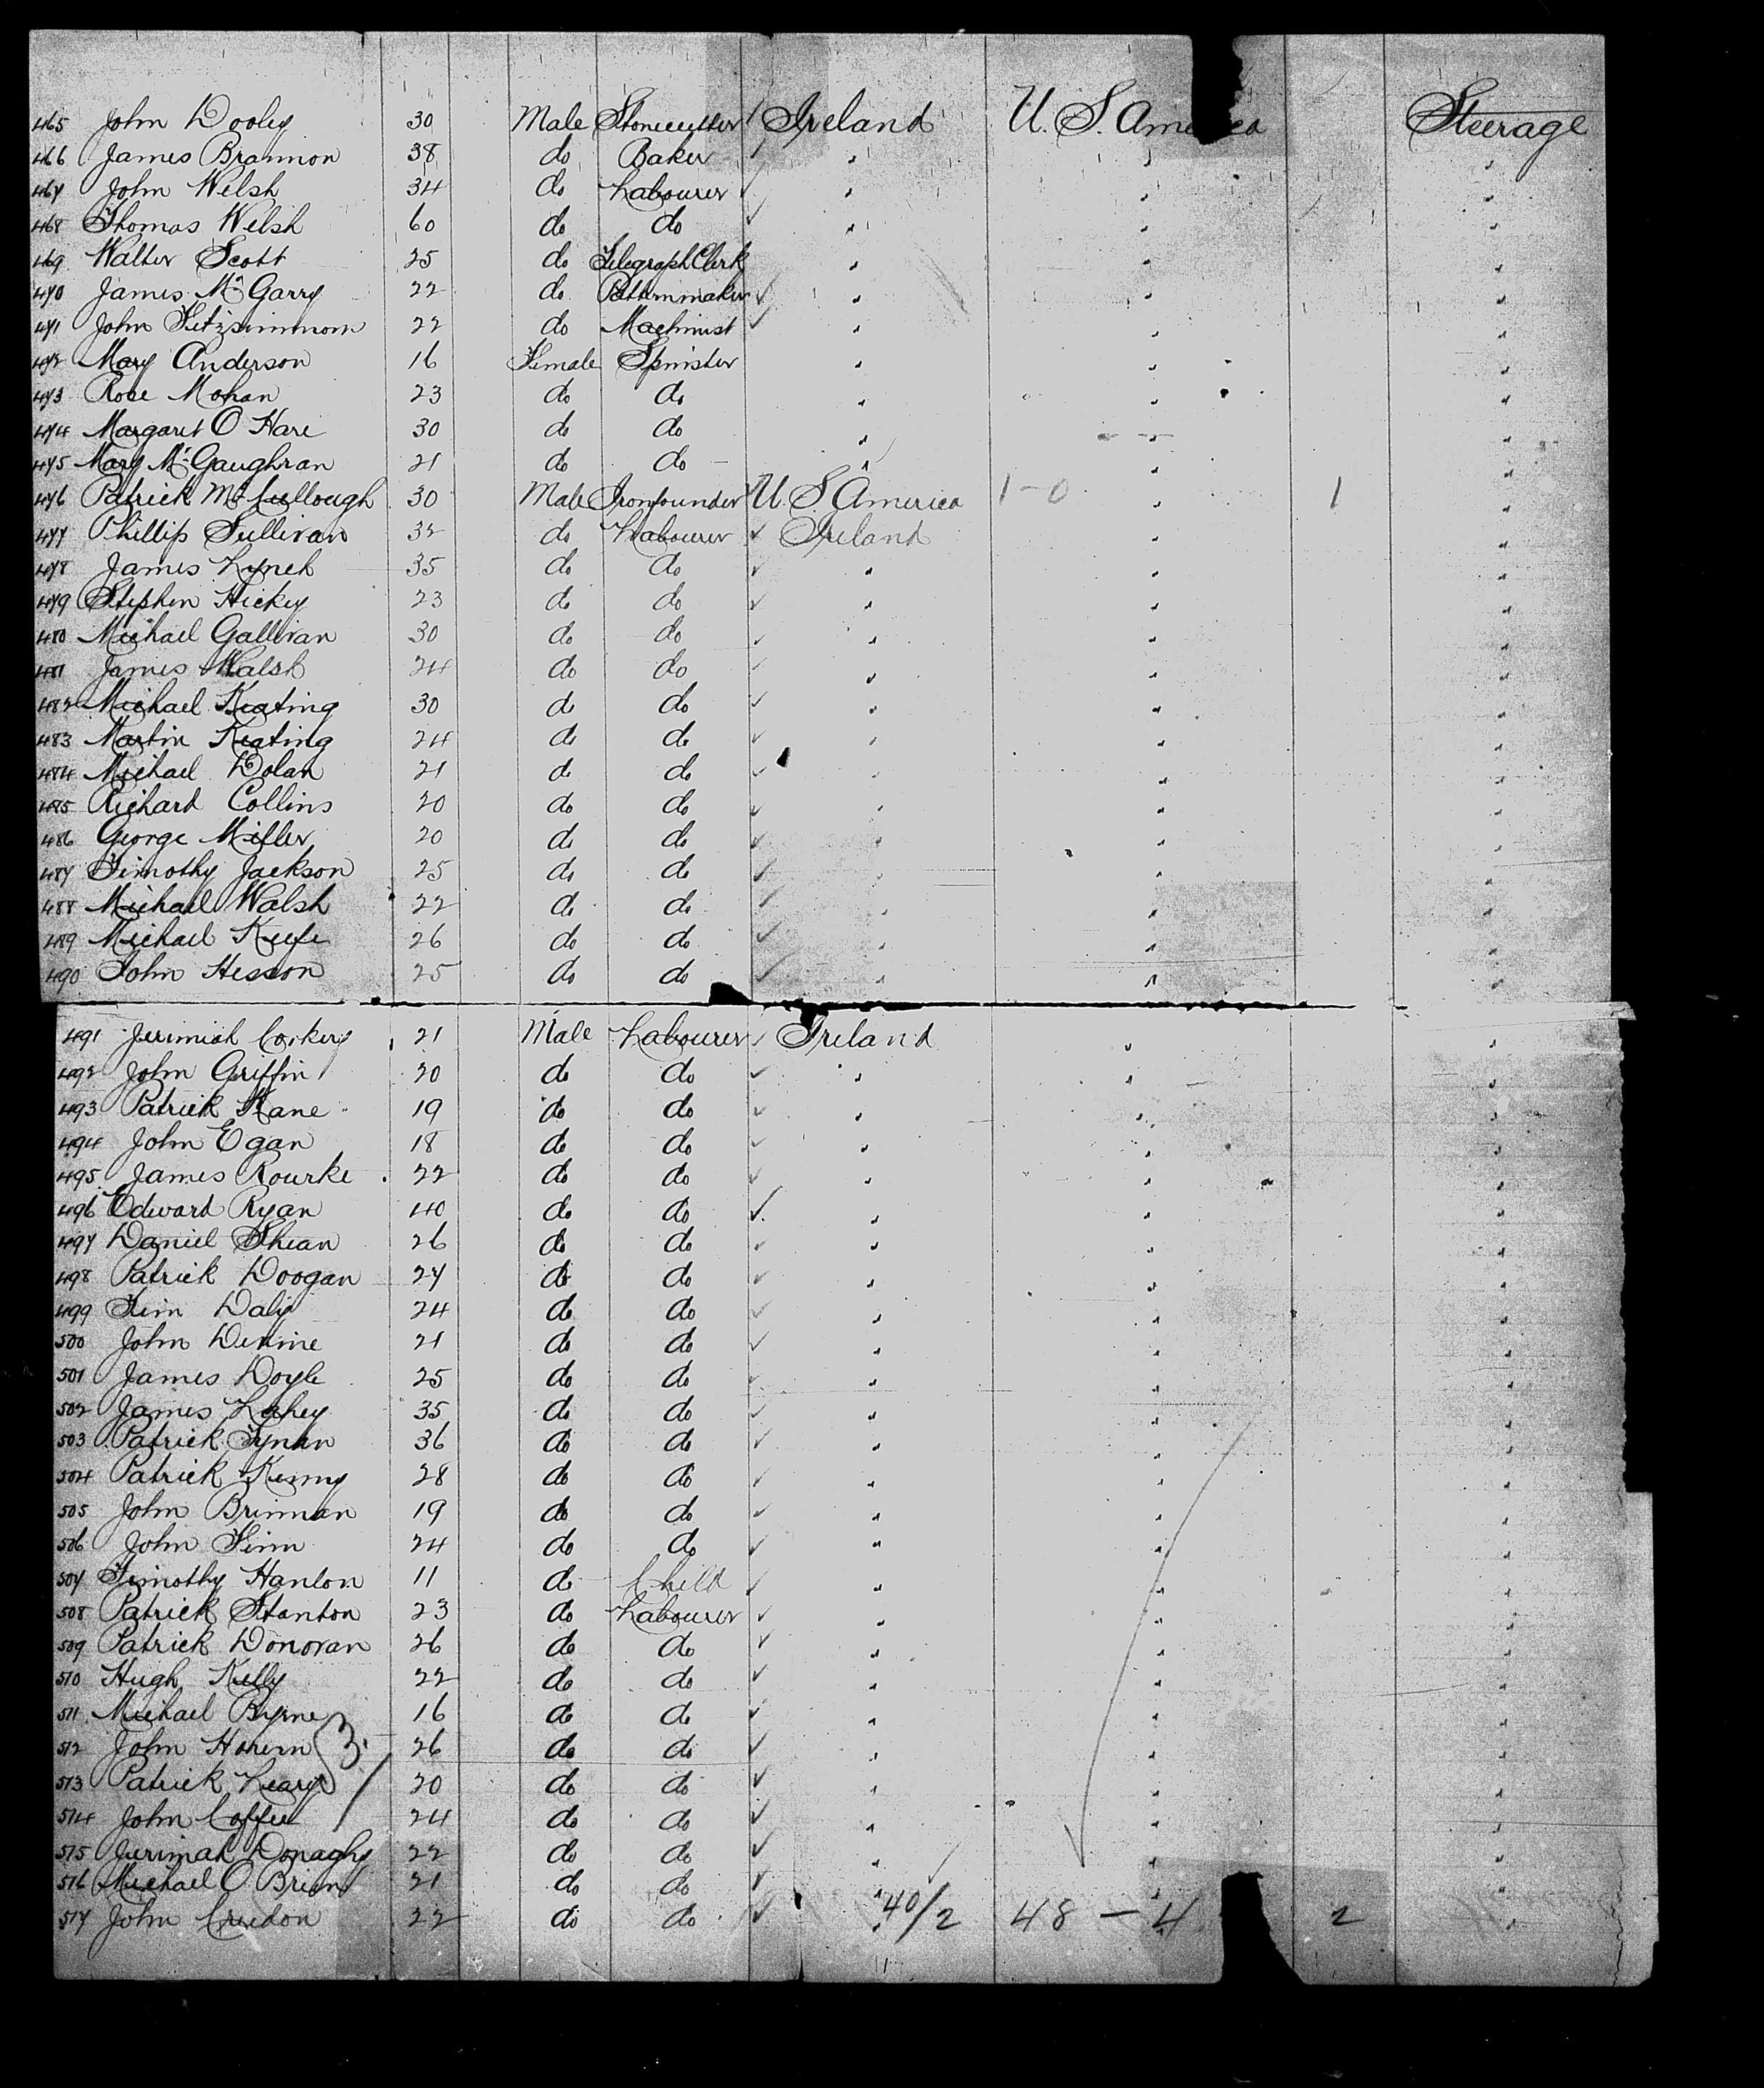 465 John Dooley 30 Male Stonecutter Ireland U.S. America Steerage
466 James Brannon 38 do Baker " " "
467 John Welsh 34 do Labourer " " "
468 Thomas Welsh 60 do do " " "
469 Walter Scott 25 do Telegraph Clerk " " "
470 James McGarry 22 do Patternmaker " " "
471 John Fitzsimmom 22 do Machinist " " "
472 Mary Anderson 16 Female Spinster " " "
473 Rose Mohan 23 do do " " "
474 Margaret O Hare 30 do do " " "
475 Mary McGaughran 21 do do " " "
476 Patrick McCullough 30 Male Ironfounder U.S. America 1-0 " 1 "
477 Phillip Sullivan 32 do Labourer Ireland " "
478 James Lynch 35 do do " " "
479 Stephen Hickey 23 do do " " "
480 Michael Gallivan 30 do do " " "
481 James Walsh 24 do do " " "
482 Michael Keating 30 do do " " "
483 Martin Keating 24 do do " " "
484 Michael Dolan 21 do do " " "
485 Richard Collins 20 do do " " "
486 George Miller 20 do do " " "
487 Timothy Jackson 25 do do " " "
488 Michael Walsh 22 do do " " "
489 Michael Keefe 26 do do " " "
490 John Hesson 25 do do " " "
491 Jerimiah Corkery 21 Male Labourer Ireland " "
492 John Griffin 20 do do " " "
493 Patrick Kane 19 do do " " "
494 John Egan 18 do do " " "
495 James Rourke 22 do do " " "
496 Edward Ryan 40 do do " " "
497 Daniel Shean 26 do do " " "
498 Patrick Doogan 27 do do " " "
499 Tim Daly 24 do do " " "
500 John Devine 21 do do " " "
501 James Doyle 25 do do " " "
502 James Lahey 35 do do " " "
503 Patrick Tynan 36 do do " " "
504 Patrick Kenny 28 do do " " "
505 John Brinnan 19 do do " " "
506 John Finn 24 do do " " "
507 Timothy Hanlon 11 do Child " " "
508 Patrick Stanton 23 do Labourer " " "
509 Patrick Donovan 26 do do " " "
510 Hugh Kelly 22 do do " " "
511 Michael Byrne 16 do do " " "
512 John Horern 3. 26 do do " " "
513 Patrick Leary 20 do do " " "
514 John Coffee 24 do do " " "
515 Jerimah Donaghy 22 do do " " "
516 Michael O Brien 21 do do " " "
517 John Creedon 22 do do " 40/2 48 - 4 2 "